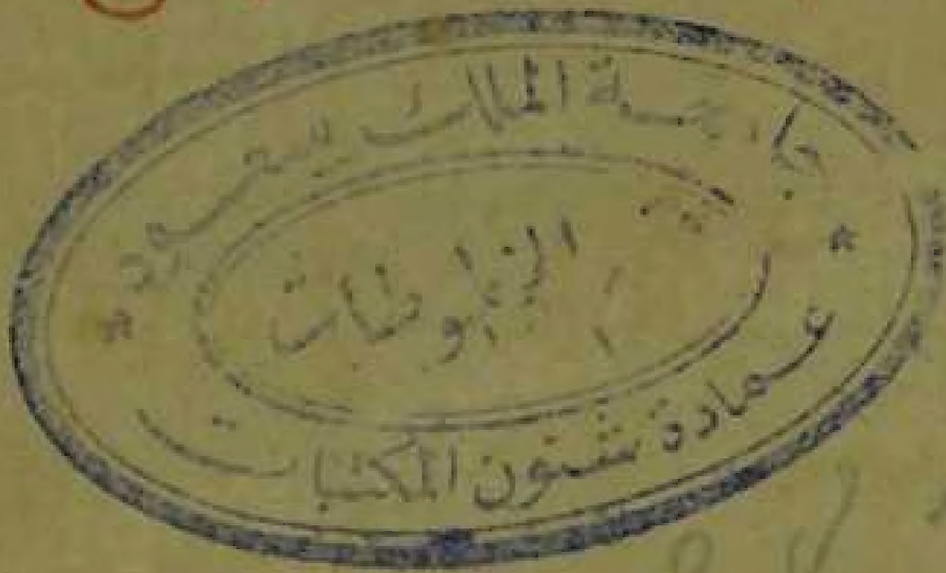 جامعة الملك سعود
المخطوطات
عمادة شئون المكتبات